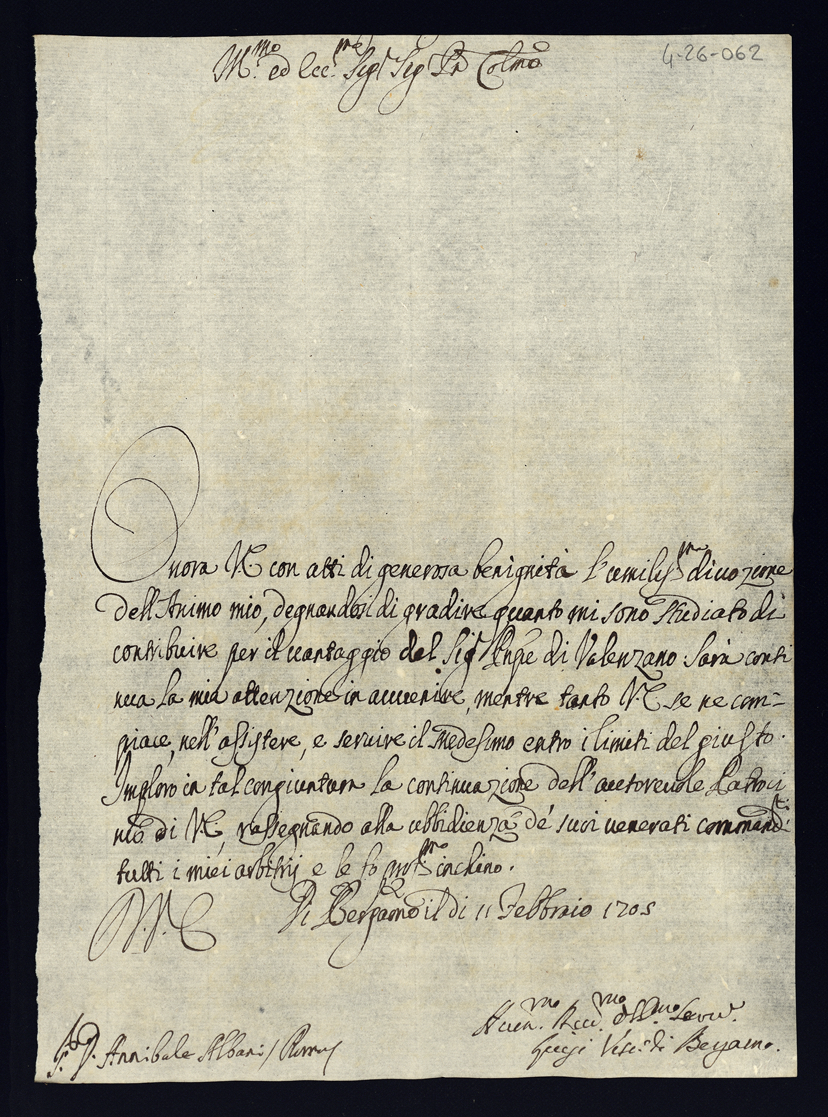 4-26-062
Ill.mo ed Ecc.mo Sig.r Sig.r P.n Colmo
Onora V.E. con atti di generosa benignità l'umiliss.ma divozione
dell'Animo mio, degnandosi di gradire quanto mi sono studiato di
contribuire per il vantaggio del Sig.r di Valenzano. Sarà conti
nua la mia attenzione in avvenire, mentre tanto V.E. se ne com=
piace, nell'assistere, e servire il medesimo entro i limiti del giusto.
Imploro in tal congiuntura la continuazione dell'autorevole Patroci
nio di V.E., rassegnando alla ubbidienza de' suoi venerati commandi
tutti i miei arbitrij e le fo inchino.
V.E. Di Bergamo il di 11 Febbraio 1705
D. Annibale Albani / Roma
Luigi Vesc.o di Bergamo.